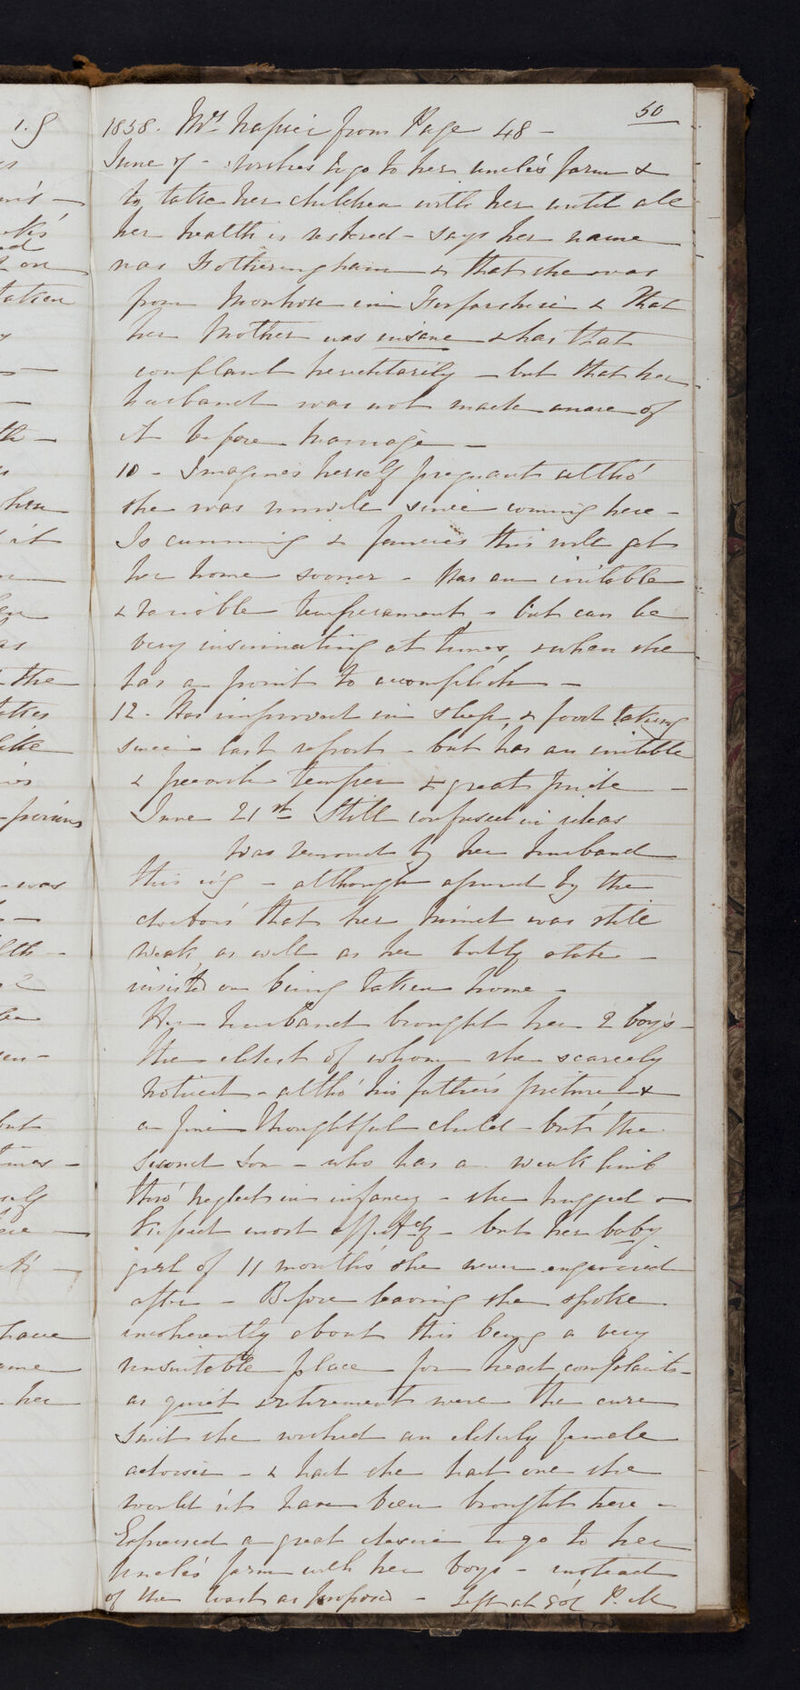 50
1838. Mrs Napier from Page 48 -
June 7 - wishes to go to her uncle's farm &
to take her children with her until all
her health is restored - says her name
was Fotheringham & that she was
from Montrose in Forfarshire & that
her Mother was insane & has that
complaint hereditarily - but that her
husband was not made aware of
it before marriage -
10 - Imagines herself pregnant altho'
she was unwell since coming here -
Is cunning & fancies this will get
her home sooner - Has an irritable
& variable temperament - but can be
very insinuating at times, & when she
has a point to accomplish -
12. Has improved in sleep, & food taking
since last report - but has an irritable
& peevish temper & great pride -
June 21st Still confused in ideas
Was removed by her husband
this - although assured by the
doctors that her mind was still
weak, as well as her bodily state -
insisted on being taken home -
Her husband brought her 2 boys -
the eldest of whom she scarcely
noticed - altho' his father's picture &
a fine thoughtful child - but the
second son - who has a weak limb
thro' neglect in infancy - she hugged &
kissed most - but her baby
girl of 11 months she never enquired
after - Before leaving she spoke
incoherently about this being a very
unsuitable place for head complaints -
as quiet & retirement were the cure
Said she wished an elderly female
adviser - & had she had one she
would n't have been brought here -
Expressed a great desire to go to her
Uncle's farm with her boys - instead
of the coast as proposed - Left at P.M